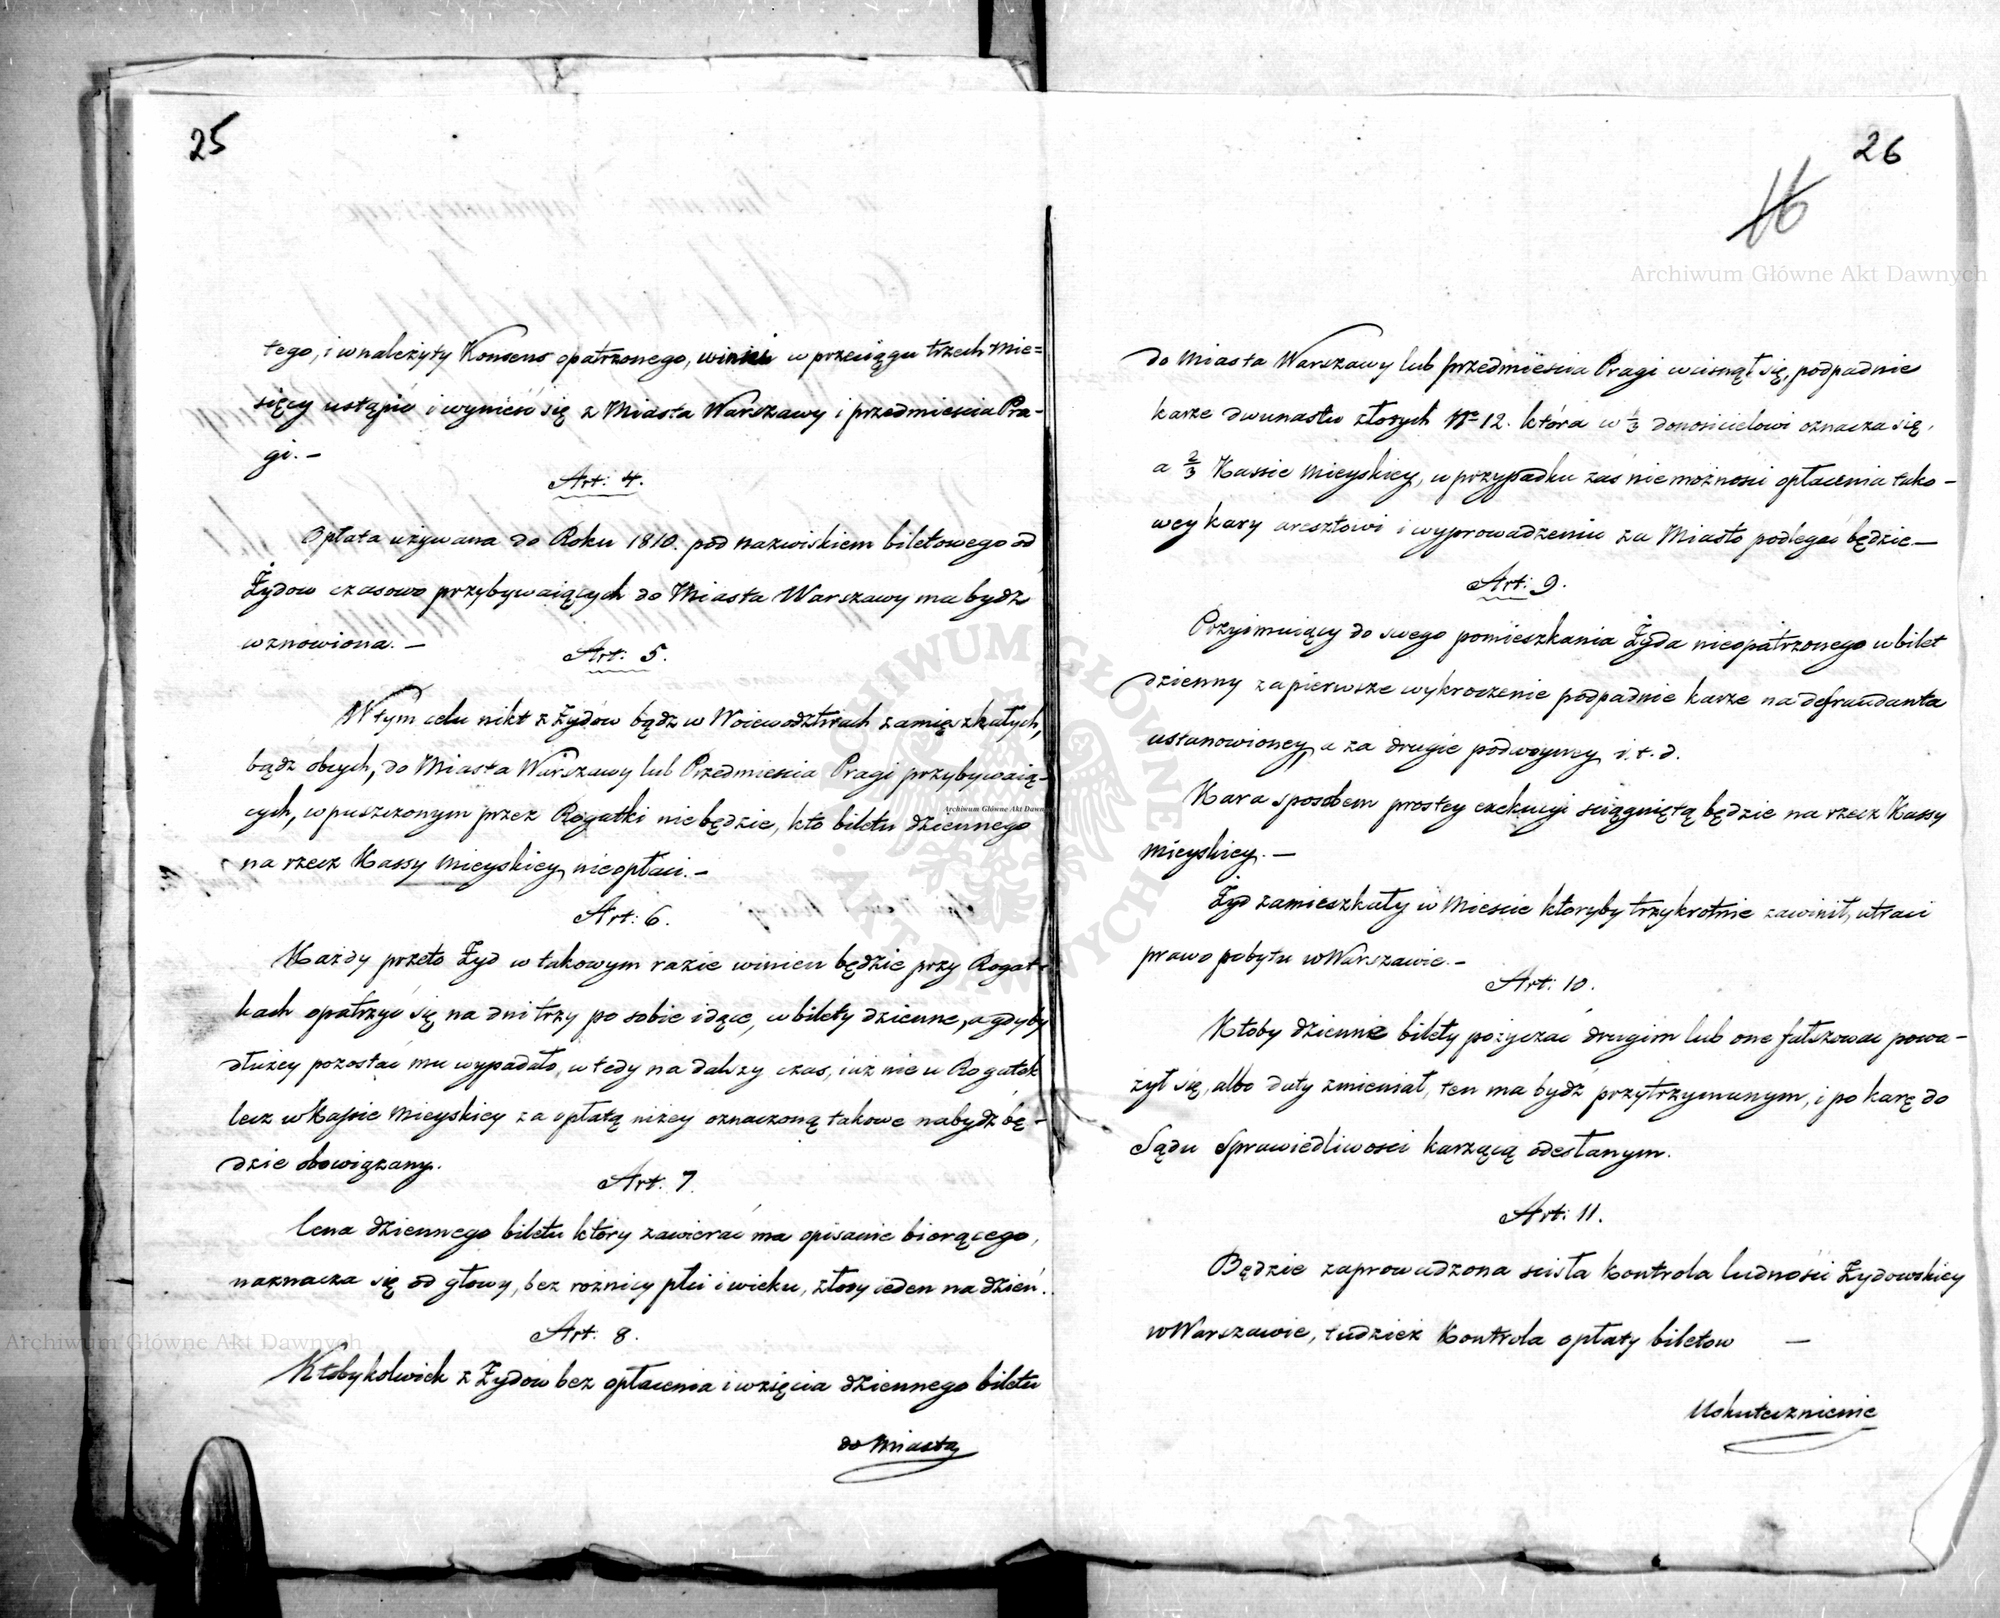 25
tego, i w należyty Konsens opatrzonego, winni w przeciągu trzech mie=
sięcy ustąpić i wynieść się z Miasta Warszawy i przedmieścia Pra-
gi. –
Art: 4.
Opłata używana do Roku 1810. pod nazwiskiem biletowego od
Żydow czasowo przybywaiących do Miasta Warszawy ma bydź
wznowiona. –
Art: 5.
W tym celu nikt z Żydów bądź w Woiewodztwach zamięszkałych,
bądź obcych, do Miasta Warszawy lub Przedmiescia Pragi przybywaią-
cych, wpuszczonym przez Rogatki nie będzie, kto biletu dziennego
na rzecz Kassy Mieyskiey nie opłaci. –
Art: 6.
Każdy przeto Żyd w takowym razie winien będzie przy Rogat-
kach opatrzyć się na dni trzy po sobie idące, w bilety dzienne, a gdyby
dłużey pozostać mu wypadało, w tedy na dalszy czas, iuż nie u Rogatek
lecz w Kassie Mieyskiey za opłatą niżey oznaczoną takowe nabydź bę-
dzie obowiązany.
Art. 7
Cena dziennego biletu który zawierać ma opisanie biorącego,
naznacza się od głowy, bez rożnicy płci i wieku, złoty ieden na dzień.
Art: 8.
Ktobykolwiek z Żydow bez opłacenia i wzięcia dziennego biletu
do Miasta
26
16
do Miasta Warszawy lub przedmiescia Pragi wcisnął się, podpadnie
karze dwunastu złotych No 12. która w 1/3 donosicielowi oznacza się,
a 2/3 Kassie Mieyskiey, w przypadku zaś niemożności opłacenia tako-
wey kary aresztowi i wyprowadzeniu za Miasto podlegać będzie –
Art: 9.
Przyimuiący do swego pomieszkania Żyda nieopatrzonego w bilet
dzienny za pierwsze wykroczenie podpadnie karze na defraudanta
ustanowioney, a za drugie podwoyney i. t. d.
Kara sposobem prostey exekucyi sciągniętą będzie na rzecz Kassy
Mieyskiey. –
Żyd zamieszkały w Miescie ktoryby trzykrotnie zawinił, utraci
prawo pobytu w Warszawie. –
Art: 10.
Ktoby dzienne bilety pożyczać drugim lub one fałszować powa-
żył się, albo daty zmieniał, ten ma bydź przytrzymanym, i po karę do
Sądu Sprawiedliwosci karzącą odesłanym.
Art: 11.
Będzie zaprowadzona scisła kontrola ludności Żydowskiey
w Warszawie, tudzież kontrola opłaty biletow –
Uskutecznienie
Archiwum Główne Akt Dawnych
Archiwum Główne Akt Dawnych
Archiwum Główne Akt Dawnych
ARCHIWUM GŁÓWNE AKT DAWNYCH